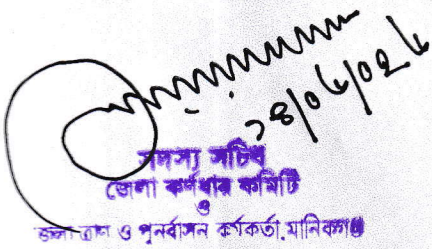 ১৪/০৬/০২৬
সদস্য সচিব
জেলা কর্ণধার কমিটি
ও
জেলা ত্রাণ ও পুনর্বাসন কর্মকর্তা, মানিকগঞ্জ